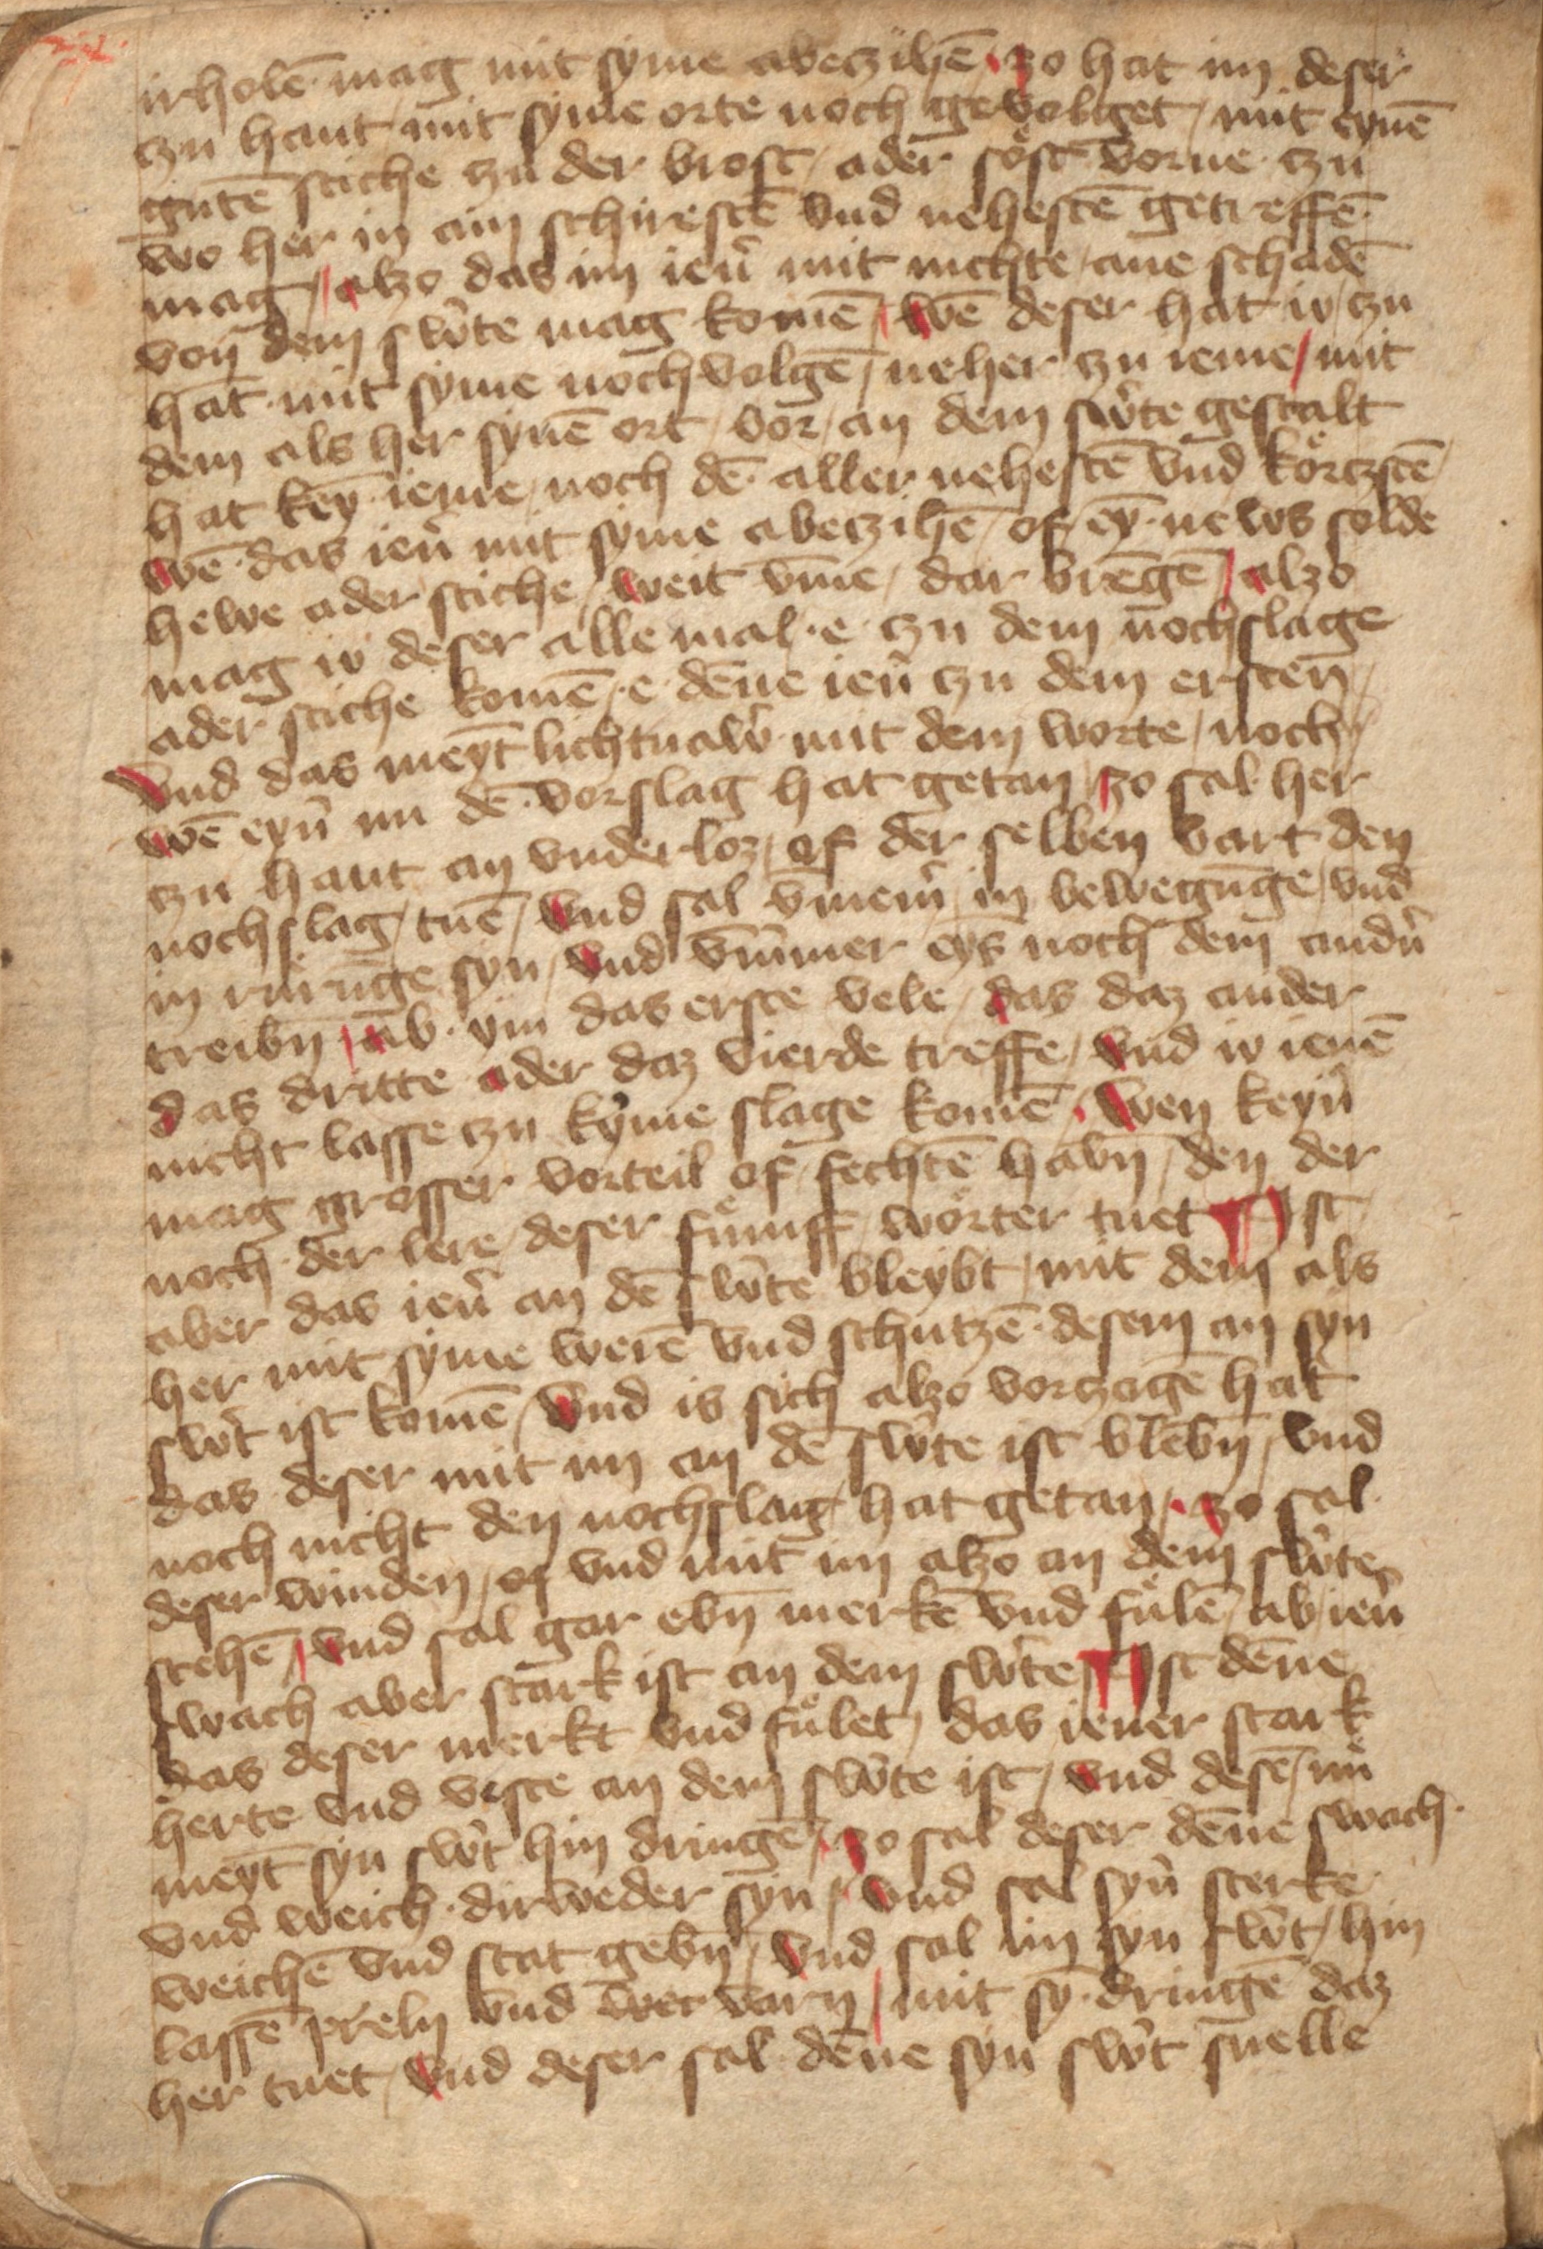 irholen mag mit syme abeczihē / zo hat im deser
czu hant mit syme orte noch gevolget / mit eynē
gutē stiche czu der brost / ader sost vorne czu
wo her in am schirestē vnd nehestē getreffē
mag / alzo das im ienr̄ mit nichte / ane schadē
von dem sw̄te mag komē / wē deser hat io / czu
hāt mit syme noch volgē / neher czu ieme / mit
dem als her synē ort / vor / an dem sw̄te gestalt
hat key ieme / noch dē aller nehestē vnd kortzstē
wē das ienr̄ mit syme abeczihē / of / ey news solde
hewe ader stiche / weit vm̄e / dar brēgē / alzo
mag io deser alle mal e czu dem nochslage
ader stiche komē / e dēne ienr̄ czu dem ersten /
vnd das meyt lichtnaw̄ mit dem worte / noch /
wē eynr̄ im dē vorslag hat getan / zo sal her
czu hant an vnderloz / of der selben vart den
nochslag / tuē / vnd sal vm̄em̄ in bewegūge / vnd
in rurūge syn / vnd vm̄mer eys noch dem andn̄
treibn̄ / ab ym das erste vele / das daz ander
das dritte ader daz vierde treffe / vnd io ienē
nicht lasse czu kyme slage komē / wen keynr̄
mag grosser vorteil of fechtē habn̄ / den der
noch der lere deser fumff worter tuet / Ist
aber das ienr̄ an dē sw̄te bleybt / mit dem als
her mit syme werē vnd schutzē desem an syn
sw̄t ist komē / vnd is sich alzo vorczogē hat
das deser mit im an dē sw̄te ist blebn̄ / vnd
noch nicht den nochslag hat getan / zo sal
deser winden / of vnd mit im alzo an dem sw̄te
stehē / vnd sal gar ebn̄ merkē vnd fulē / ab / ienr̄
swach aber stark ist an dem sw̄te / Ist dēne
das deser merkt vnd fulet / das iener stark
herte vnd veste an dem sw̄te ist / vnd desē / nu
meyt syn sw̄t hin dringē / zo sal deser dēne swach
vnd weich dirweder syn / vnd sal synr̄ sterke
weichē vnd stat gebn̄ / vnd sal im syn sw̄t / hin
lassē preln̄ vnd wec varn̄ / mit sy dringē daz
her tuet / vnd deser sal dēne syn sw̄t snelle